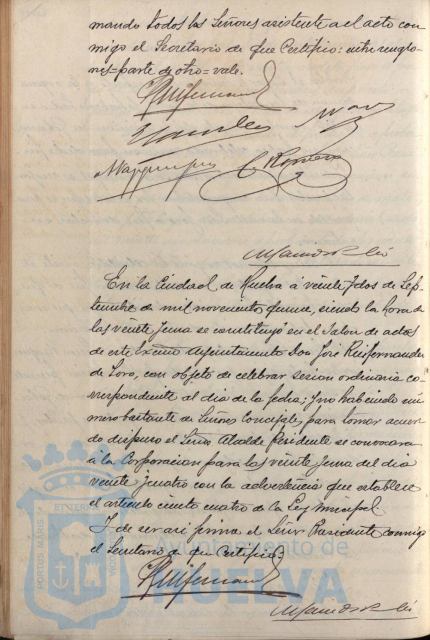 mando todos los Señores asistente a el acto con
migo el Secretario de que Certifico: entre renglo
nes=parte de otro=vale.
En la Ciudad de Huelva á veinte y dos de Sep-
tiembre de mil novecientos quince, siendo la hora de
las veinte y una se constituyó en el Salon de actos
de este Excmo Ayuntamiento Don José Ruifernandez
de Toro, con objeto de celebrar sesion ordinaria co-
rrespondiente al dia de la fecha; y no habiendo nú
mero bastante de Señores Concejales para tomar acuer
do dispuso el Señor Alcalde Presidente se convocara
á la Corporacion para las veinte y una del dia
veinte y cuatro con la advertencia que establece
el articulo ciento cuatro de la Ley municipal
Y de ser asi firma el Señor Presidente conmigo
el Secretario de que certifico.
Ayuntamiento de
HUELVA
PORTUS MARIS